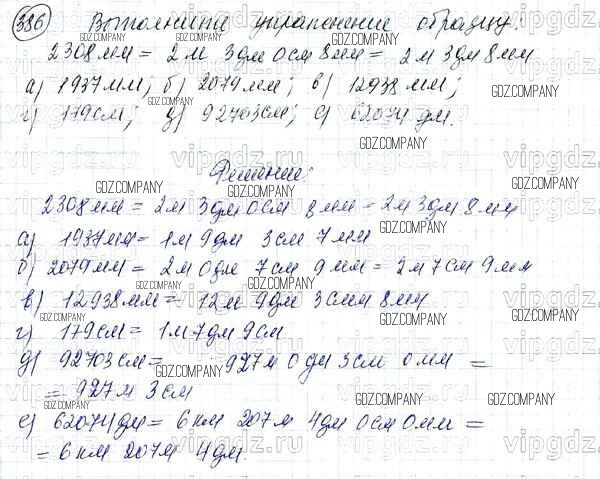 386 Выполните упражнение образцу:
2308мм = 2м 3дм 0см 8мм = 2м 3дм 8мм
а) 1937мм; б) 2079мм; в) 12938мм;
г) 179см; д) 92703см; е) 62074дм.
Решение:
2308мм = 2м 3дм 0см 8мм = 2м 3дм 8мм
а) 1937мм = 1м 9дм 3см 7мм
б) 2079мм = 2м 0дм 7см 9мм = 2м 7см 9мм
в) 12938мм = 12м 9дм 3см 8мм
г) 179см = 1м 7дм 9см
д) 92703см = 927м 0дм 3см 0мм =
= 927м 3см
е) 62074дм = 6км 207м 4дм 0см 0мм =
= 6км 207м 4дм.